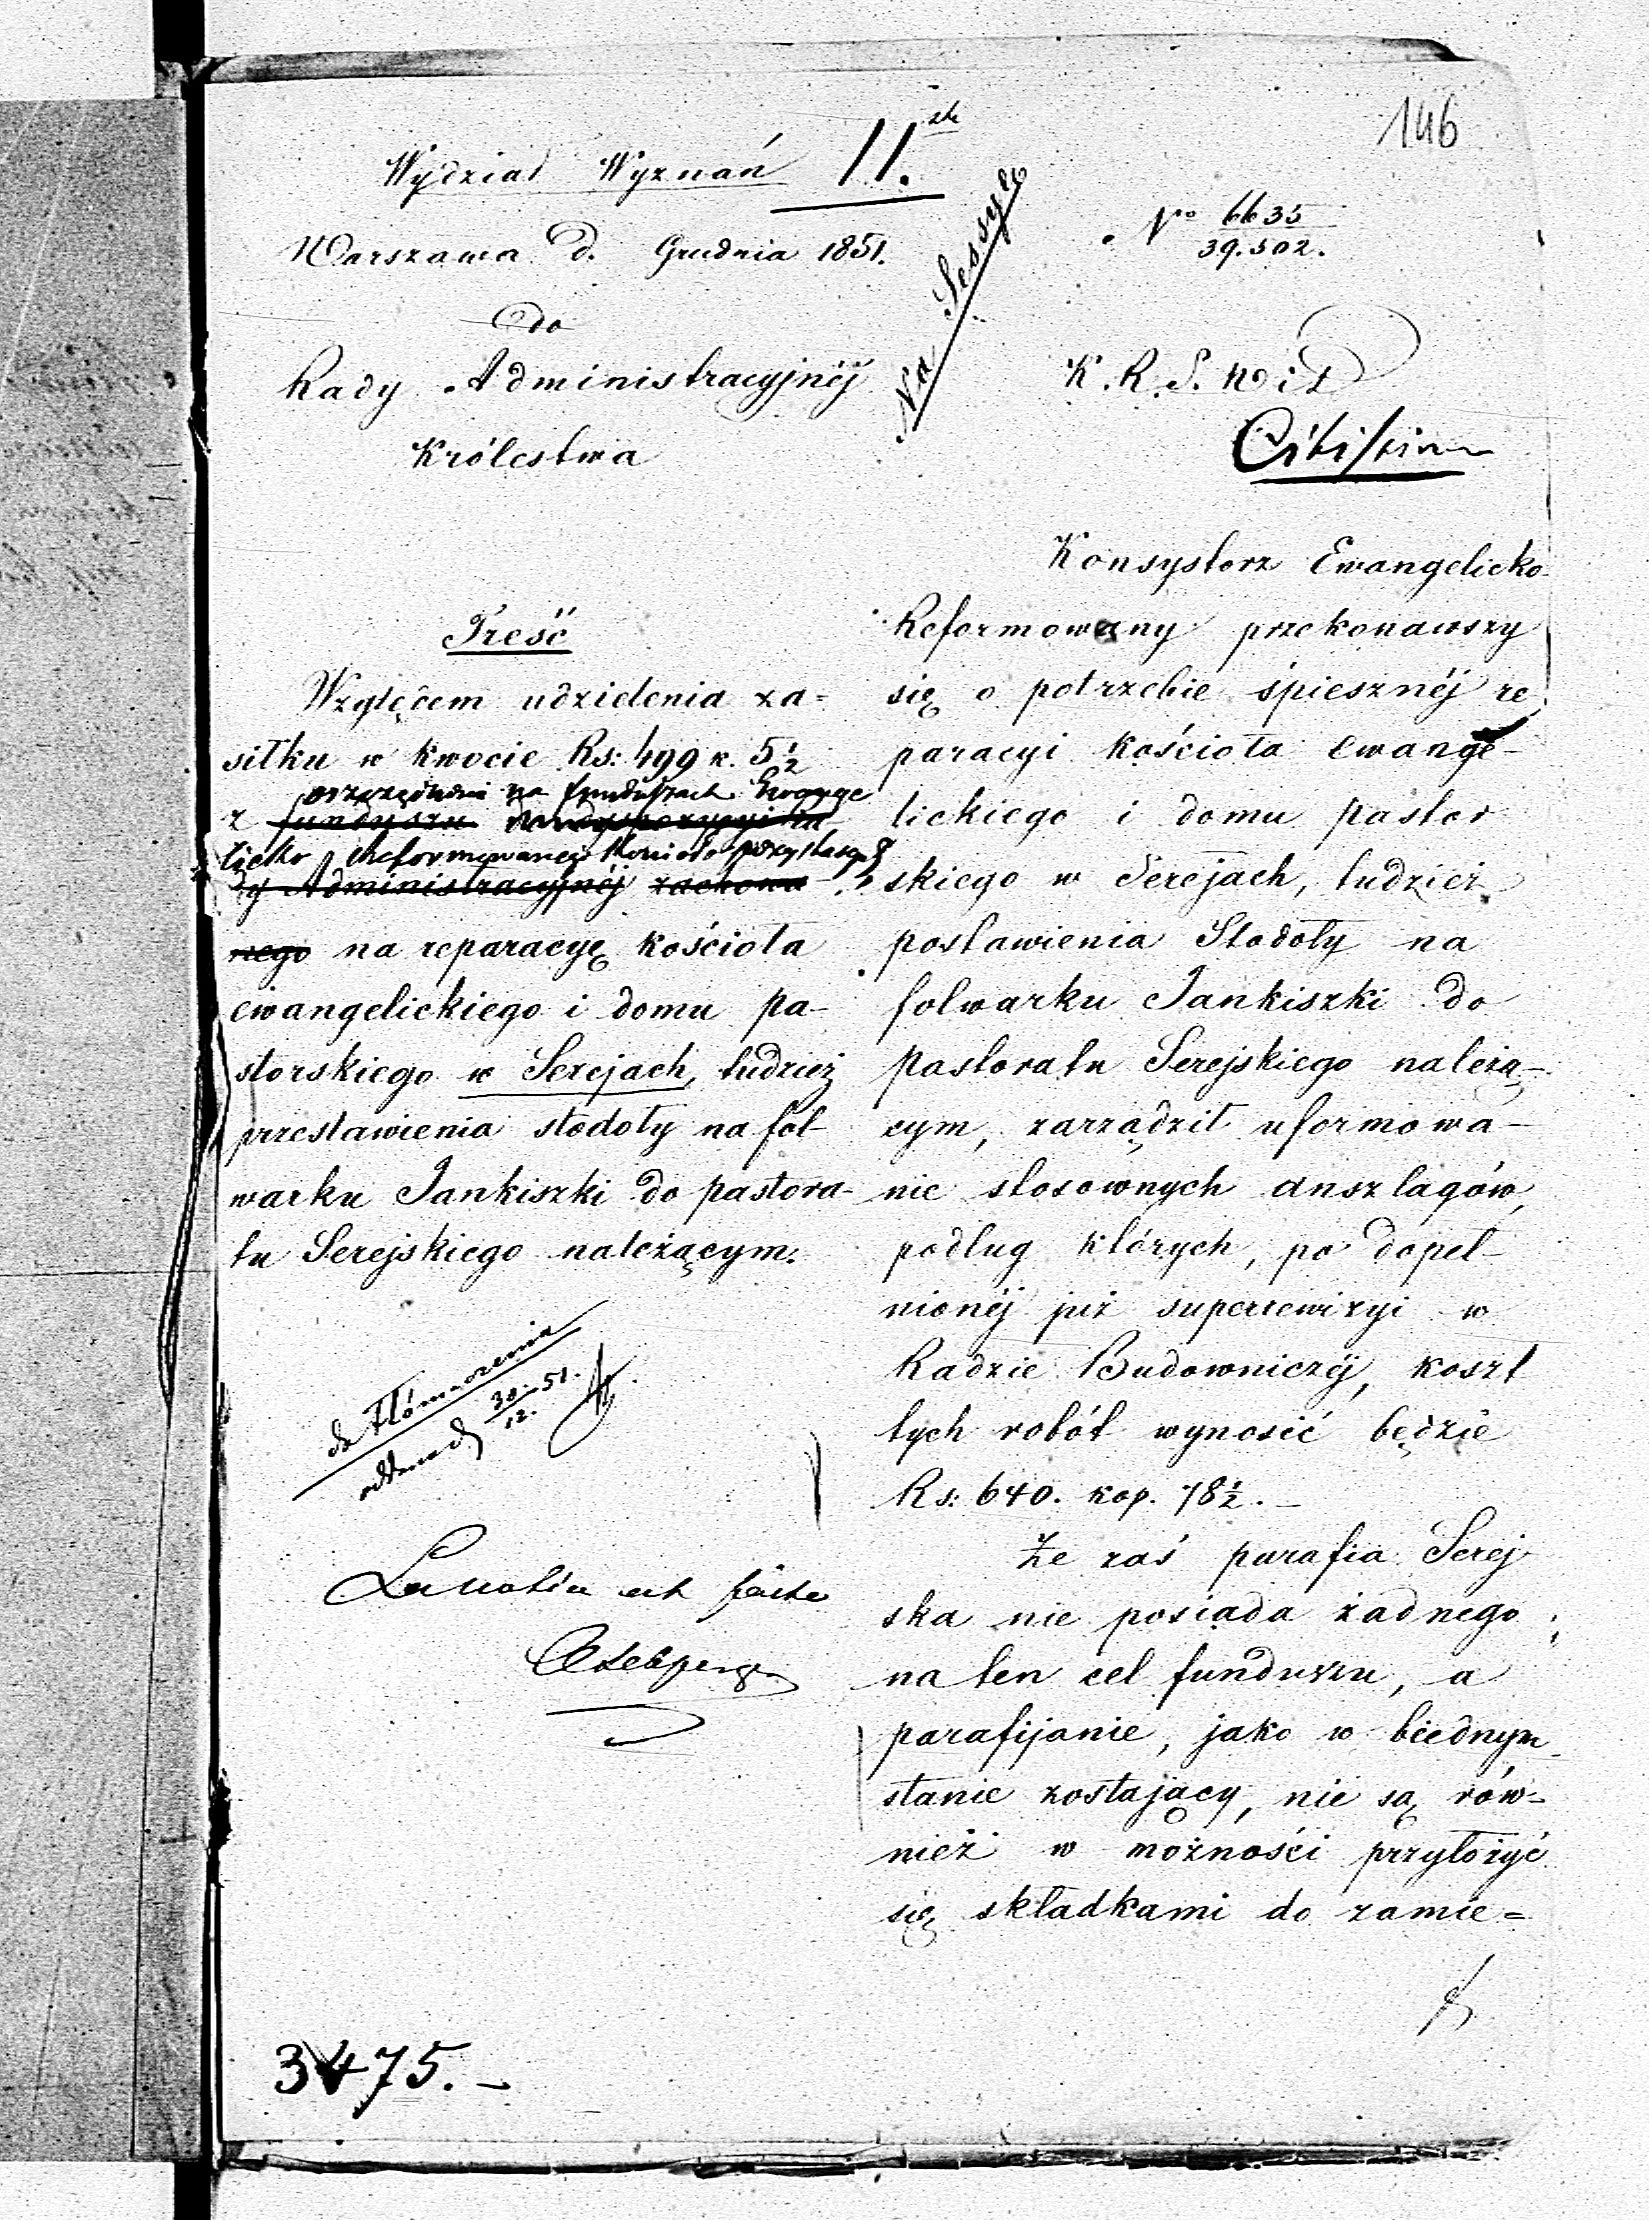 146
Wydział Wyznań 11.
Warszawa d. Grudnia 1851.
Na Sessyę
No 6635
39.502.
do
Rady Administracyjnéj
Królestwa
K. R. S. W. i D.
Treść
Względem udzielenia za=
siłku w kwocie Rs: 499 k. 5½
na funduszach Ewange
z funduszu
licko Reformowanego
dy Administracyjnéj zachowa
nego na reparacyę kościoła
ewangelickiego i domu pa-
storskiego w Serejach, tudzież
przestawienia stodoły na fol
warku Jankiszki do pastora-
tu Serejskiego należącym.
do tłómaczenia
30/12. 51.
3475.-
Konsystorz Ewangelicko-
Reformowany przekonawszy
się o potrzebie śpiesznéj re
paracyi kościoła ewange-
lickiego i domu pastor
skiego w Serejach, tudzież
postawienia Stodoły na
folwarku Jankiszki do
pastoratu Serejskiego należą-
cym, zarządził uformowa-
nie stosownych anszlagów,
podług których, po dopeł-
nionéj już superrewizyi w
Radzie Budowniczéj, koszt
tych robót wynosić będzie
Rs: 640. kop. 78½.-
Że zaś parafia Serej
ska nie posiada żadnego
na ten cel funduszu, a
parafijanie, jako w biednym
stanie zostający, nie są rów=
nież w możności przyłożyć
się składkami do zamie=